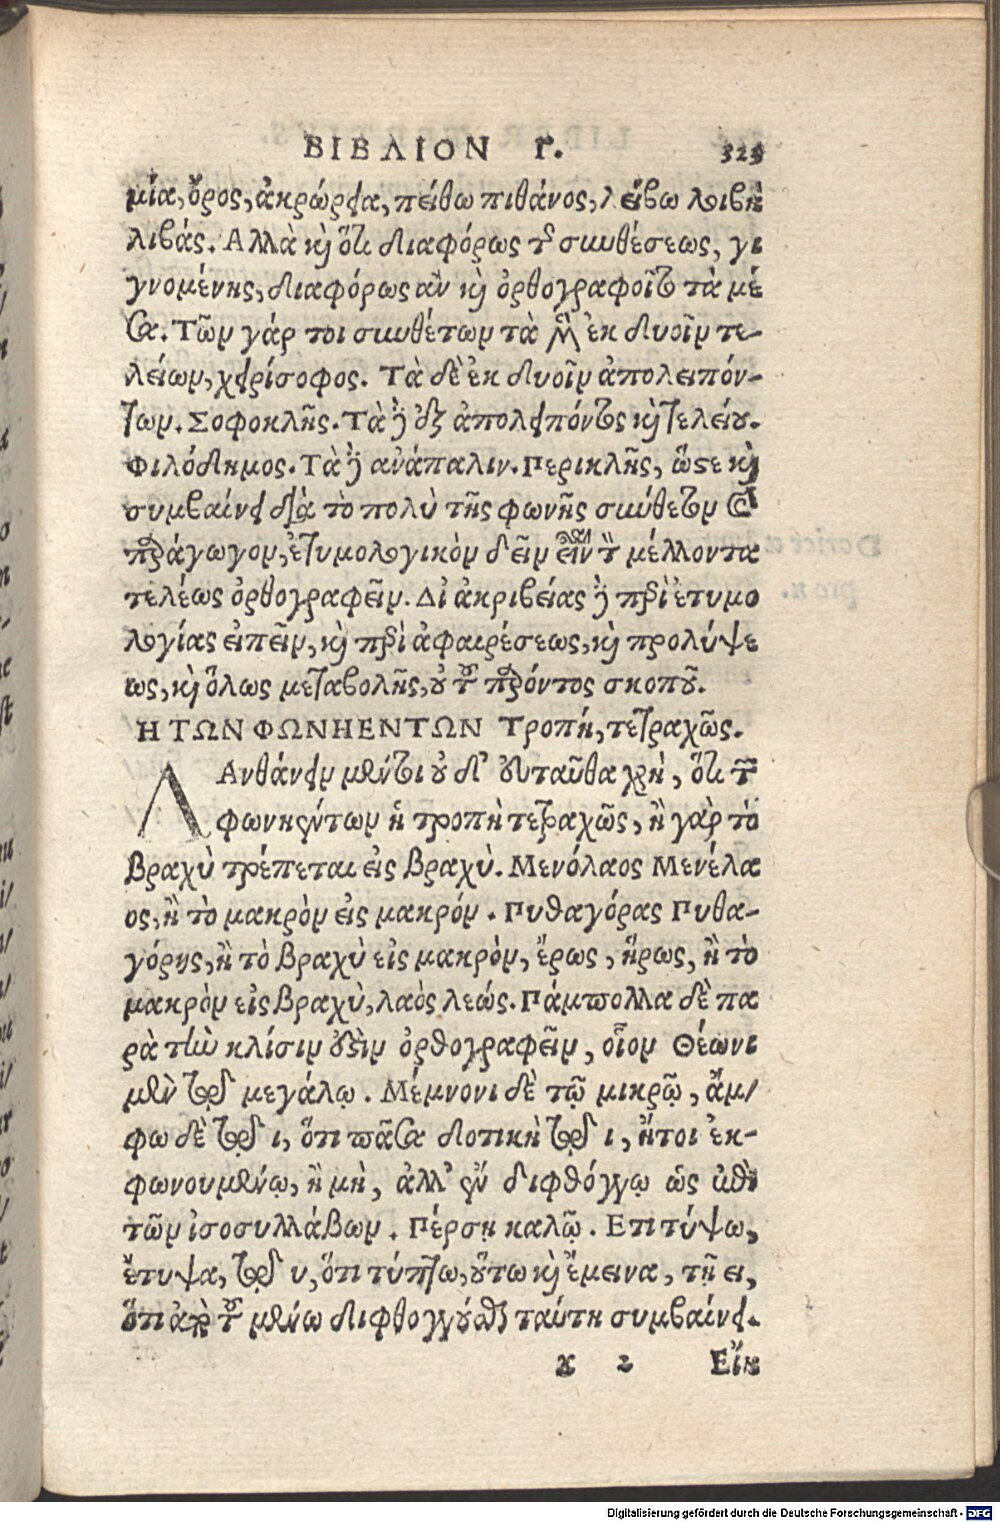 ΒΙΒΛΙΟΝ Γ. 325
μία, ὄρος, ἀκρώρεια, πείθω πιθάνος, λείβω λοιβὴ
λιβάς. Αλλὰ καὶ ὅτι διαφόρως τῆς συνθέσεως, γι
γνομένης, διαφόρως ἂν καὶ ὀρθογραφοῖτο τὰ μέ
σα. Τῶν γάρ τοι συνθέτων τὰ μὲν ἐκ δυοῖν τε-
λείων, χειρίσοφος. Τὰ δὲ ἐκ δυοῖν ἀπολειπόν-
των. Σοφοκλῆς. Τὰ δὲ ἐξ ἀπολειπόντος καὶ τελείου.
Φιλόδημος. Τὰ δὲ ἀνάπαλιν. Περικλῆς, ὥστε καὶ
συμβαίνει διὰ τὸ πολὺ τῆς φωνῆς σύνθετον καὶ
παράγωγον, ἐτυμολογικὸν δεῖν εἶναι τὸν μέλλοντα
τελέως ὀρθογραφεῖν. Δι ἀκριβείας δὲ περὶ ἐτυμο
λογίας εἰπεῖν, καὶ περὶ ἀφαιρέσεως, καὶ προλύψε
ως, καὶ ὅλως μεταβολῆς, οὐ τοῦ παρόντος σκοποῦ.
Η ΤΩΝ ΦΩΝΗΕΝΤΩΝ Τροπή, τετραχῶς.
ΛΑνθάνειν μέντοι οὐ δι' ἐνταῦθα χρὴ, ὅτι τῶν
φωνηέντων ἡ τροπὴ τετραχῶς, ἢ γὰρ τὸ
βραχὺ τρέπεται εἰς βραχὺ. Μενόλαος Μενέλα
ος, ἢ τὸ μακρὸν εἰς μακρόν. Πυθαγόρας Πυθα-
γόρης, ἢ τὸ βραχὺ εἰς μακρὸν, ἔρως, ἥρως, ἢ τὸ
μακρὸν εἰς βραχὺ, λαὸς λεώς. Πάμπολλα δὲ πα
ρὰ τὴν κλίσιν ὀρθογραφεῖν, οἷον Θέωνι
μὲν διὰ τοῦ μεγάλῳ. Μέμνονι δὲ τῷ μικρῷ, ἄμ/
φω δὲ διὰ τοῦ ι, ὅτι πᾶσα δοτικὴ διὰ τοῦ ι, ἤτοι ἐκ-
φωνουμένῳ, ἢ μὴ, ἀλλ' ἐν διφθόγγῳ ὡς ἐπὶ
τῶν ἰσοσυλλάβων. Πέρσῃ καλῷ. Ετι τύψω,
ἔτυψα, διὰ τοῦ υ, ὅτι τύπτω, οὕτω καὶ ἔμεινα, τῇ ει,
ὅτι παρὰ τοῦ μένω διφθογγοῦσθαι ταύτῃ συμβαίνει.
x 2 Εἴη